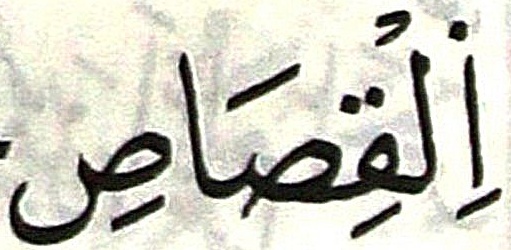 اِلْقِصَاصِ